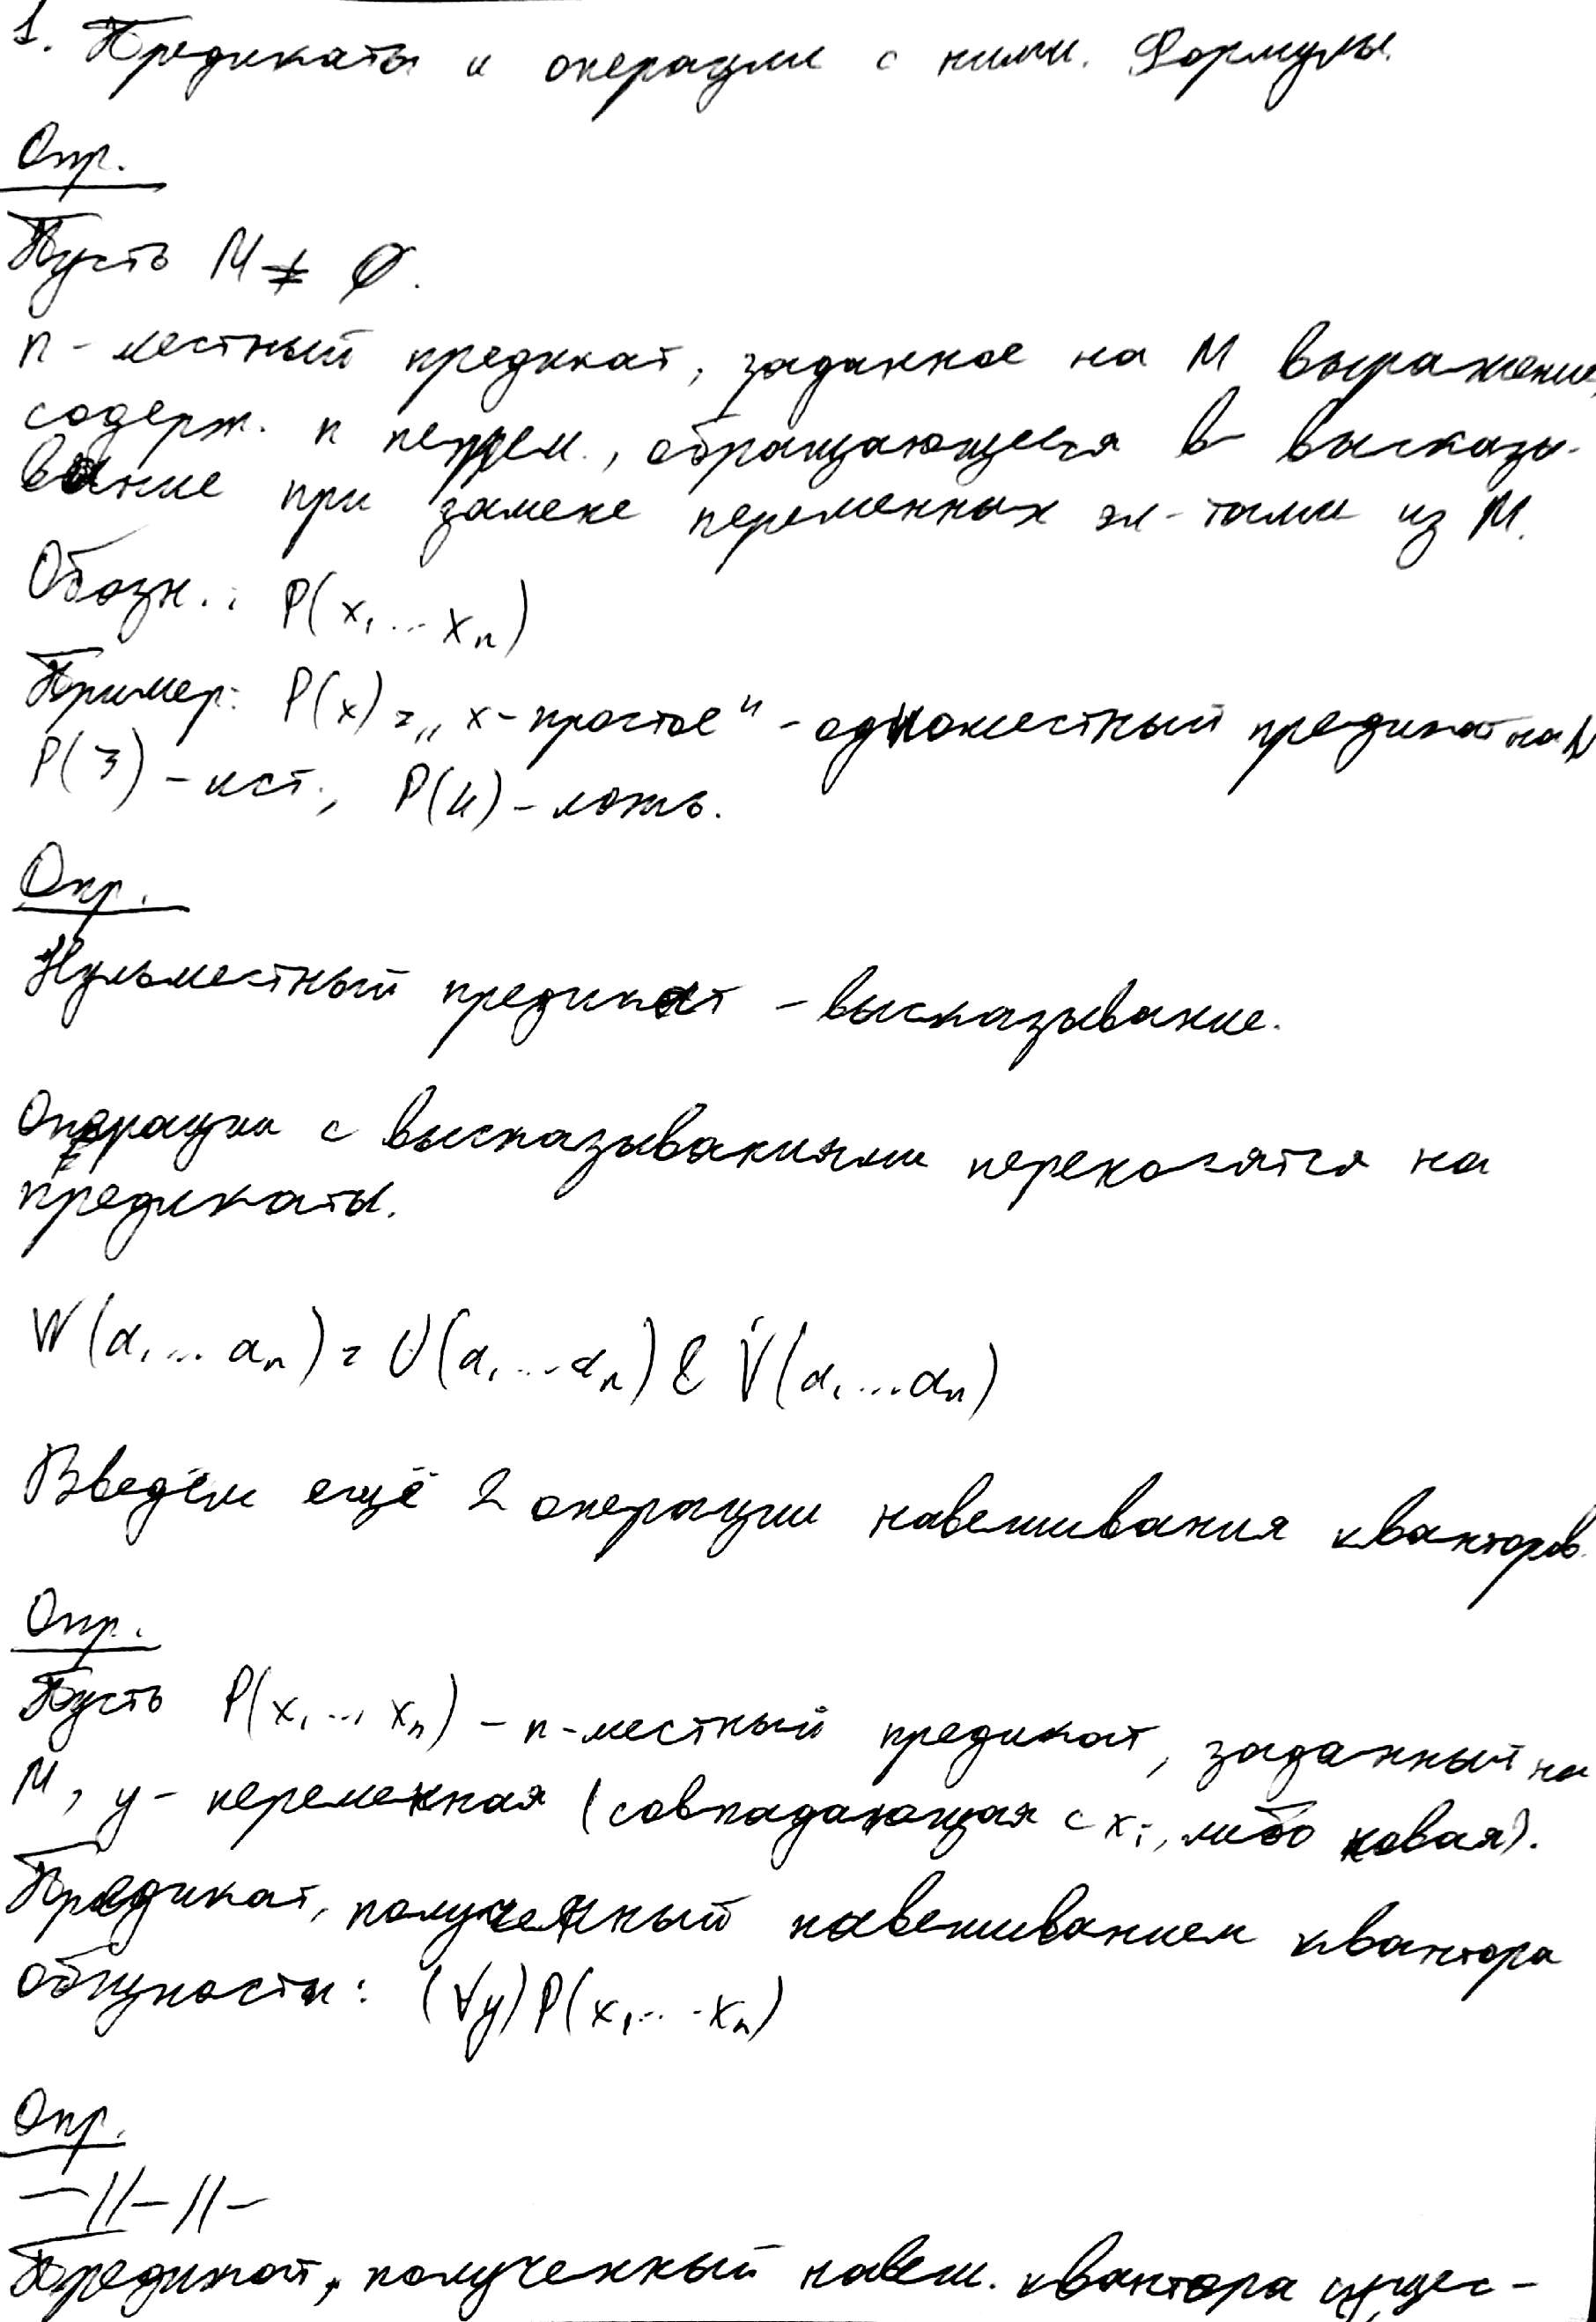 1. Предикаты и операции с ними. Формулы.
Опр.
Пусть M ≠ ∅.
n-местный предикат, заданное на M выражение,
содерж. n перем., обращающееся в высказы-
вание при замене переменных эл-тами из M.
Обозн.: P(x₁...xₙ)
Пример: P(x) = „x-простое“ - одноместный предикат на N
P(3) - ист., P(4) - ложь.
Опр.
Нульместный предикат - высказывание.
Операции с высказываниями переносятся на
предикаты.
W(α₁...αₙ) = U(α₁...αₙ) & V(α₁...αₙ)
Введём ещё 2 операции навешивания кванторов.
Опр.
Пусть P(x₁..., xₙ) - n-местный предикат, заданный на
M, y - переменная (совпадающая с xᵢ, либо новая).
Предикат, полученный навешиванием квантора
общности: (∀y)P(x₁...xₙ)
Опр.
—//—//—
Предикат, полученный навеш. квантора сущес-